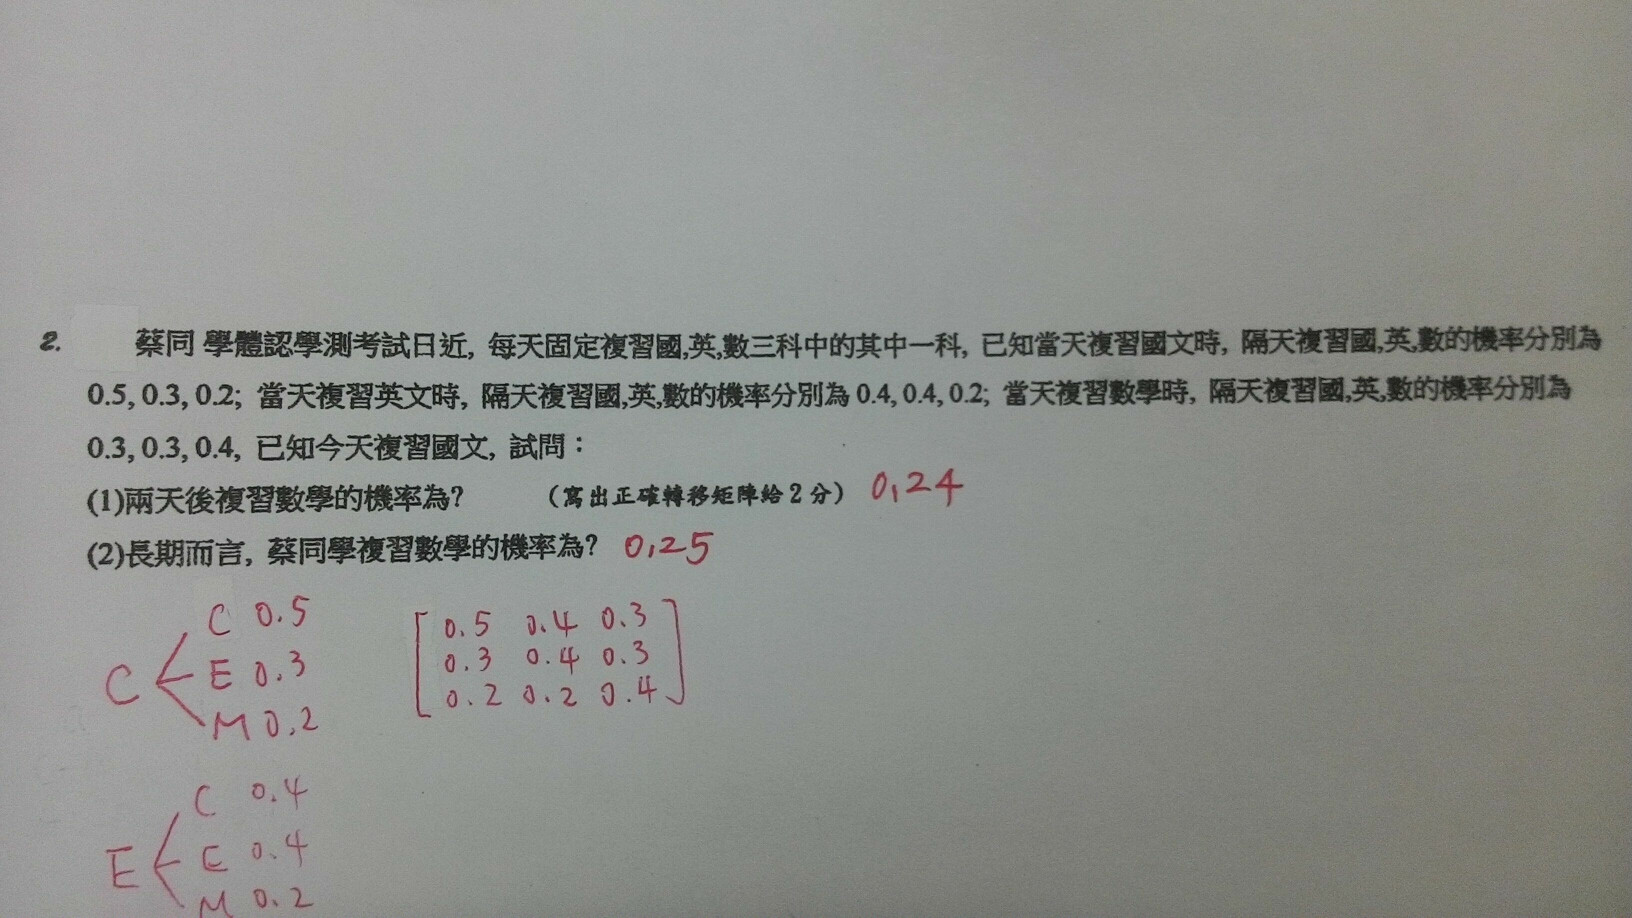 2. 蔡同 學體認學測考試日近, 每天固定複習國,英,數三科中的其中一科, 已知當天複習國文時, 隔天複習國,英,數的機率分別為
0.5, 0.3, 0.2; 當天複習英文時, 隔天複習國,英,數的機率分別為 0.4, 0.4, 0.2; 當天複習數學時, 隔天複習國,英,數的機率分別為
0.3, 0.3, 0.4, 已知今天複習國文, 試問：
(1)兩天後複習數學的機率為? (寫出正確轉移矩陣給2分) 0.24
(2)長期而言, 蔡同學複習數學的機率為? 0.25
C 0.5
C E 0.3
M 0.2
0.5 0.4 0.3
0.3 0.4 0.3
0.2 0.2 0.4
C 0.4
E E 0.4
M 0.2